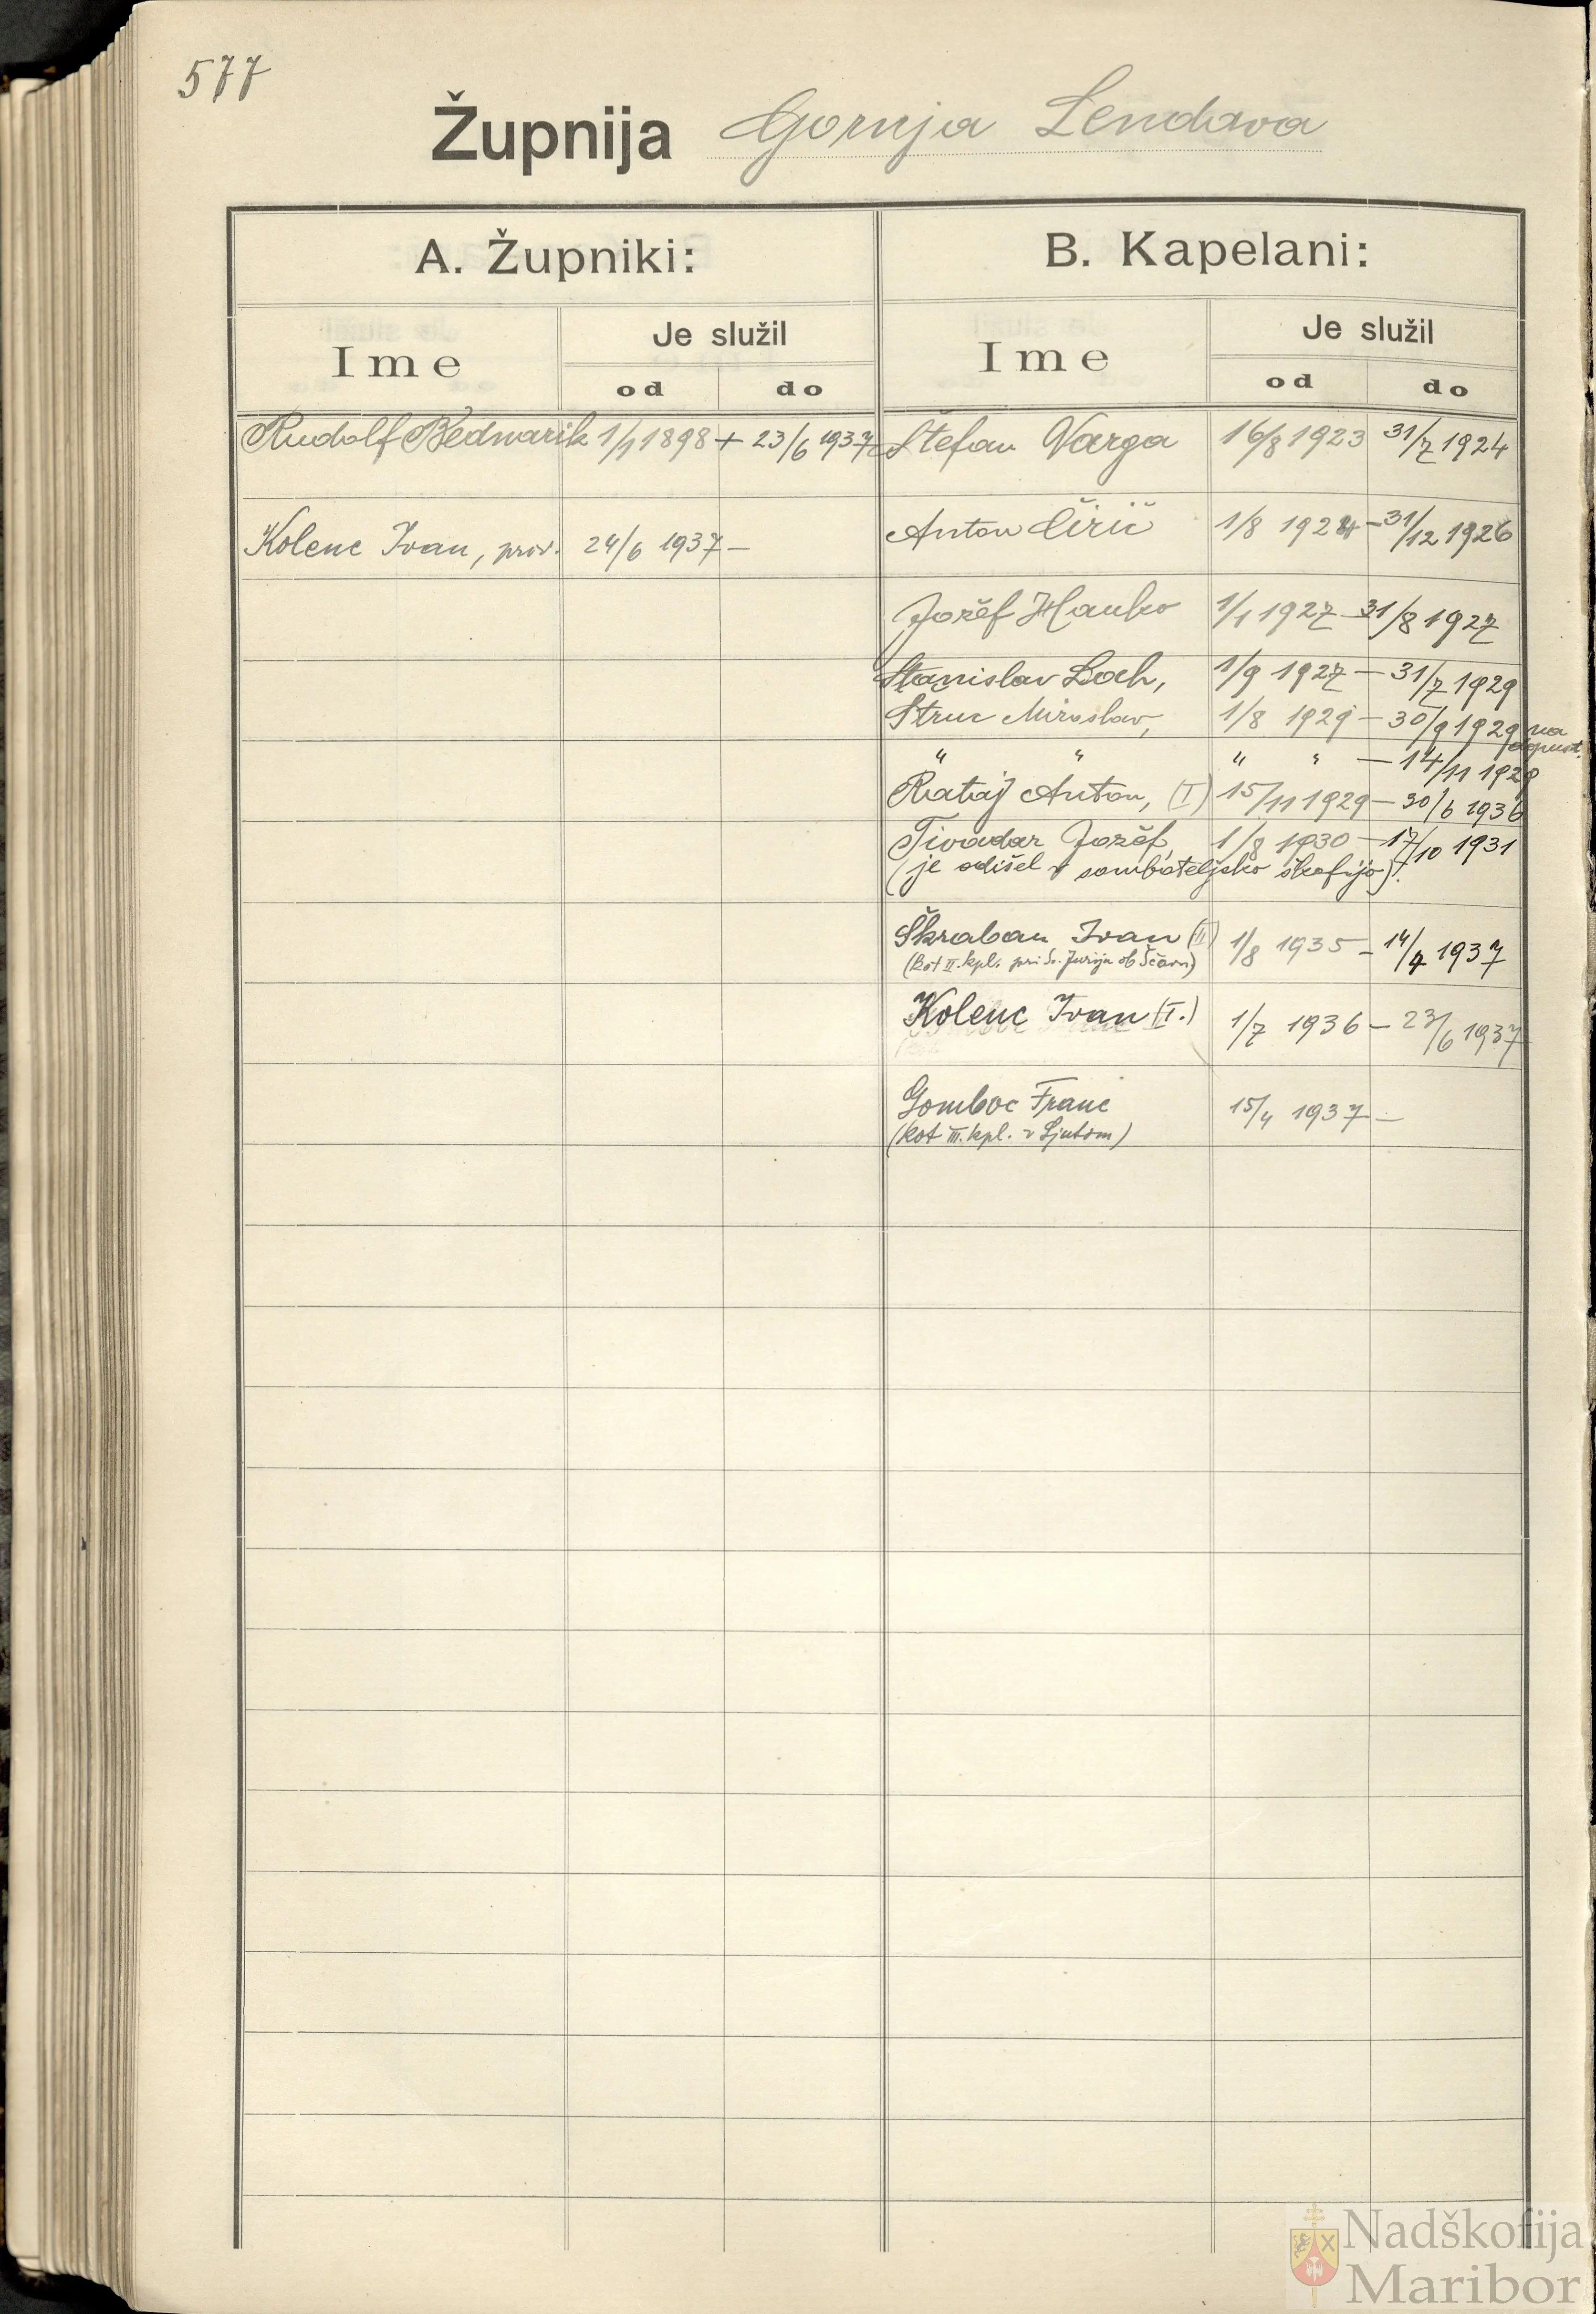 577
Župnija Gornja Lendava
A. Župniki:
Ime
Je služil
od do
Rudolf Bednarik 1/1 1898 + 23/6 1937
Kolenc Ivan, prov. 24/6 1937 –
B. Kapelani:
Ime
Je služil
od do
Štefan Varga 16/8 1923 31/7 1924
Anton Čirič 1/8 1924 – 31/12 1926
Jožef Hauko 1/1 1927 – 31/8 1927
Stanislav Loch, 1/9 1927 – 31/7 1929
Struc Miroslav, 1/8 1929 – 30/9 1929 na
dopust.
" " " " – 14/11 1929
Rataj Anton, (I) 15/11 1929 – 30/6 1936
Tivadar Jožef, 1/8 1930 – 17/10 1931
(je odišel v sombateljsko škofijo).
Škraban Ivan (II) 1/8 1935 – 14/4 1937
(kot II. kpl. pri Sv. Juriju ob Ščavn)
Kolenc Ivan (I.) 1/7 1936 – 23/6 1937
Gomboc Franc 15/4 1937 –
(kot III. kpl. v Ljutom)
Nadškofija
Maribor